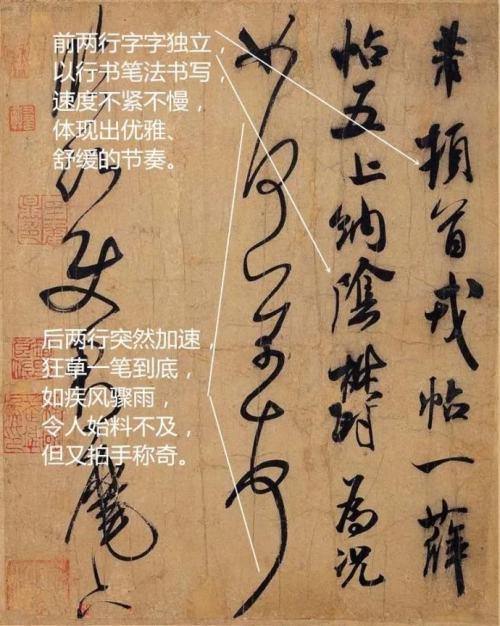 芾頓首戎帖一薛
帖五上納陰鬱為況
如何芾頓首
臨沂使君麾下
前两行字字独立，
以行书笔法书写，
速度不紧不慢，
体现出优雅、
舒缓的节奏。
后两行突然加速，
狂草一笔到底，
如疾风骤雨，
令人始料不及，
但又拍手称奇。